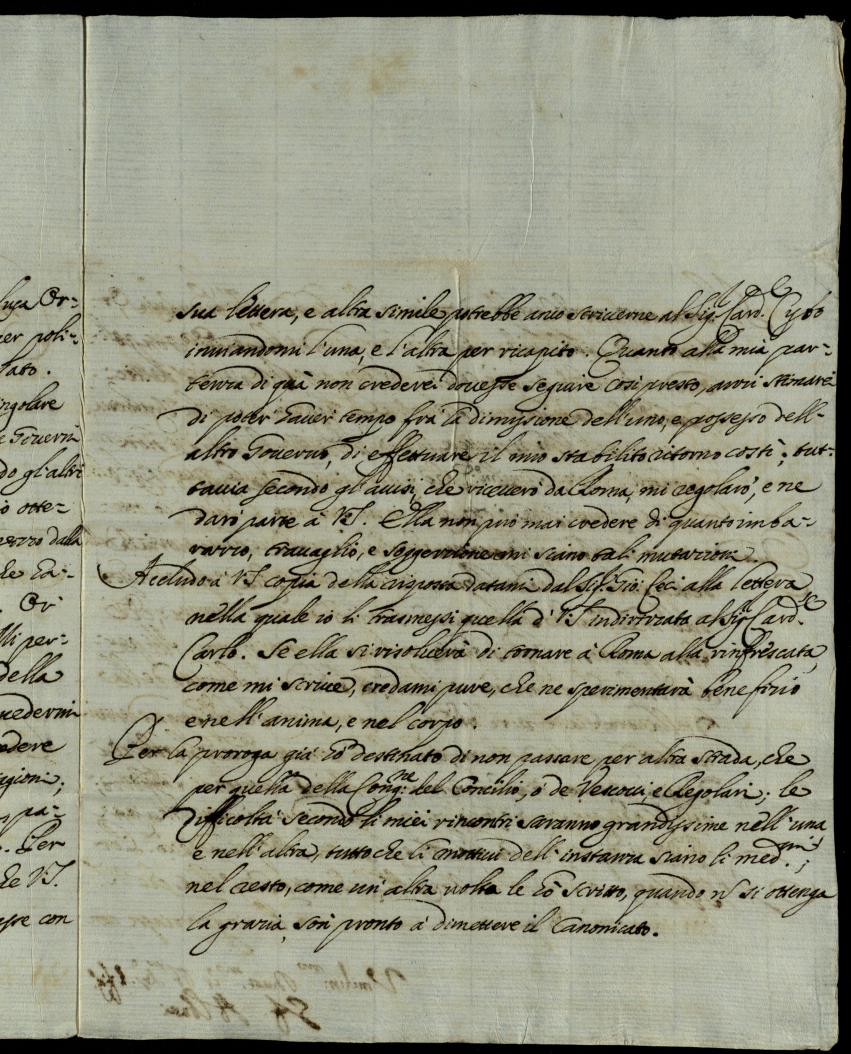 luca Or-
per poli-
lato.
ingolare
e Governi
do gl'altri
io otte-
che ha-
Or
lli per-
della
edere
pa-
. Per
che VS.
con
sua lettera, e altra simile potrebbe anco scriverne al Sig.r Card.le Cybo
inviandomi l'una, e l'altra per ricapito. Quanto alla mia par-
tenza di quà non crederei dovesse seguire così presto, anzi stimarei
di poter haver tempo frà la dimissione dell'uno, e possesso dell'
altro Governo, di effettuare il mio stabilito ritorno costì; tut-
tavia secondo gl'avisi, che riceverò da Roma, mi regolarò, e ne
darò parte à VS. Ella non può mai credere di quanto imba-
razzo, travaglio, e soggezzione mi siano tali mutazioni.
Accludo à VS. copia della risposta datami dal Sig.r Gio: Ceci alla lettera,
nella quale io li trasmessi quella di VS. indirizzata al Sig.r Card.le
Carlo. Se ella si risolverà di tornare à Roma alla rinfrescata,
come mi scrive, credami pure, che ne sperimentarà benefizio
e nell'anima, e nel corpo.
Per la proroga già hò destinato di non passare per altra strada, che
per quella della Cong.ne del Concilio, ò de Vescovi, e Regolari; le
difficoltà secondo li miei rincontri saranno grandissime nell'una
e nell'altra, tutto che li motivi dell'instanza siano li med.mi;
nel resto, come un'altra volta le hò scritto, quando nō si ottenga
la grazia, son pronto à dimettere il Canonicato.